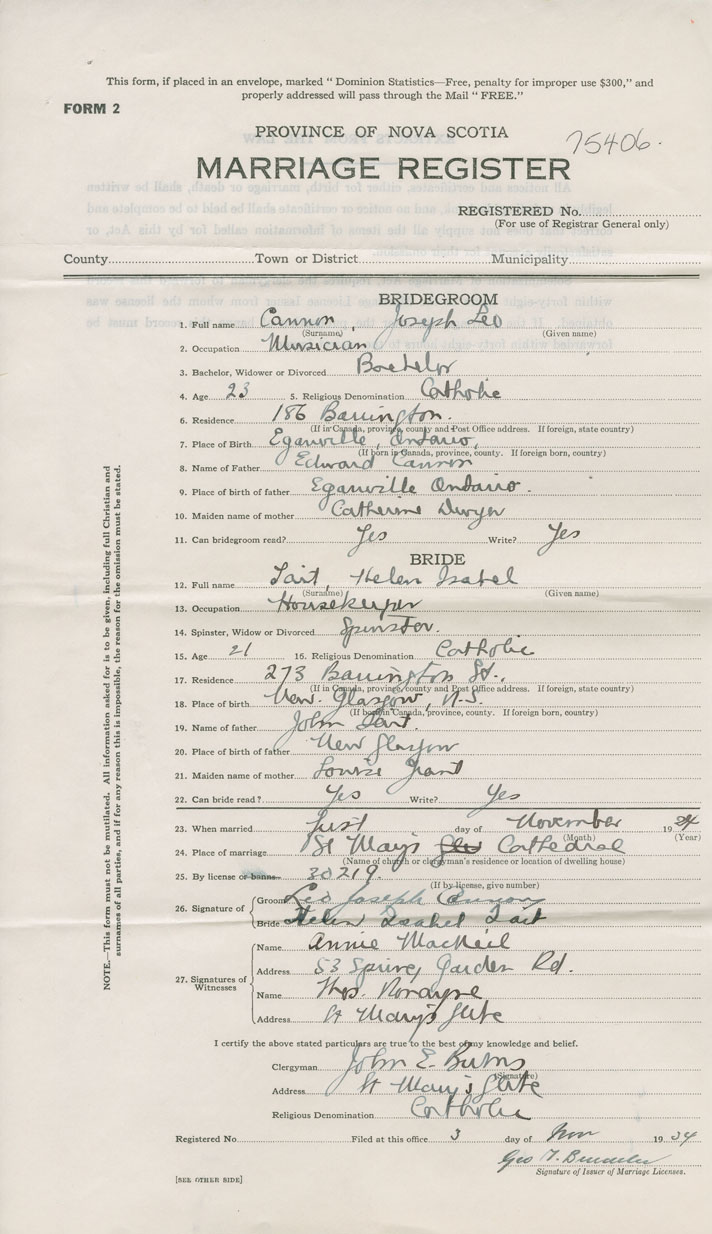 This form, if placed in an envelope, marked " Dominion Statistics—Free, penalty for improper use $300," and
properly addressed will pass through the Mail " FREE."
FORM 2
PROVINCE OF NOVA SCOTIA
75406.
MARRIAGE REGISTER
REGISTERED No.
(For use of Registrar General only)
County Town or District Municipality
BRIDEGROOM
1. Full name Cannon, Joseph Leo
(Surname) (Given name)
2. Occupation Musician
3. Bachelor, Widower or Divorced Bachelor
4. Age 23 5. Religious Denomination Catholic
6. Residence 186 Barrington.
(If in Canada, province, county and Post Office address. If foreign, state country)
7. Place of Birth Eganville, Ontario,
(If born in Canada, province, county. If foreign born, country)
8. Name of Father Edward Cannon
9. Place of birth of father Eganville Ontario.
10. Maiden name of mother Catherine Dwyer
11. Can bridegroom read? Yes Write? Yes
BRIDE
12. Full name Tait, Helen Isabel
(Surname) (Given name)
13. Occupation Housekeeper
14. Spinster, Widow or Divorced Spinster.
15. Age 21 16. Religious Denomination Catholic
17. Residence 273 Barrington St.,
(If in Canada, province, county and Post Office address. If foreign, state country)
18. Place of birth New. Glasgow, N.S.
(If born in Canada, province, county. If foreign born, country)
19. Name of father John Tait.
20. Place of birth of father New Glasgow
21. Maiden name of mother Louise Grant
22. Can bride read? Yes Write? Yes
23. When married first day of November 1934
(Month) (Year)
24. Place of marriage St Mary's Cathedral
(Name of church or clergyman's residence or location of dwelling house)
25. By license or banns 30219.
(If by license, give number)
26. Signature of Groom Leo Joseph Cannon
Bride Helen Isabel Tait
27. Signatures of Witnesses
Name Annie MacNeil
Address 53 Spring Garden Rd.
Name Thos.
Address St Mary's Glebe
I certify the above stated particulars are true to the best of my knowledge and belief.
Clergyman John E. Burns
(Signature)
Address St Mary's Glebe
Religious Denomination Catholic
Registered No. Filed at this office 3 day of Nov 1934
Geo
Signature of Issuer of Marriage Licenses.
[SEE OTHER SIDE]
NOTE.—This form must not be mutilated. All information asked for is to be given, including full Christian and
surnames of all parties, and if for any reason this is impossible, the reason for the omission must be stated.